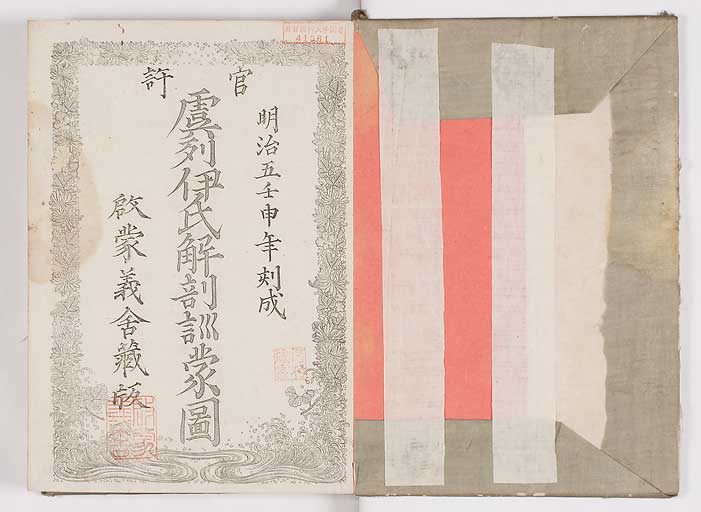 官許
明治五壬申年刻成
虞列伊氏解剖訓蒙圖
啟蒙義舍藏版
41261